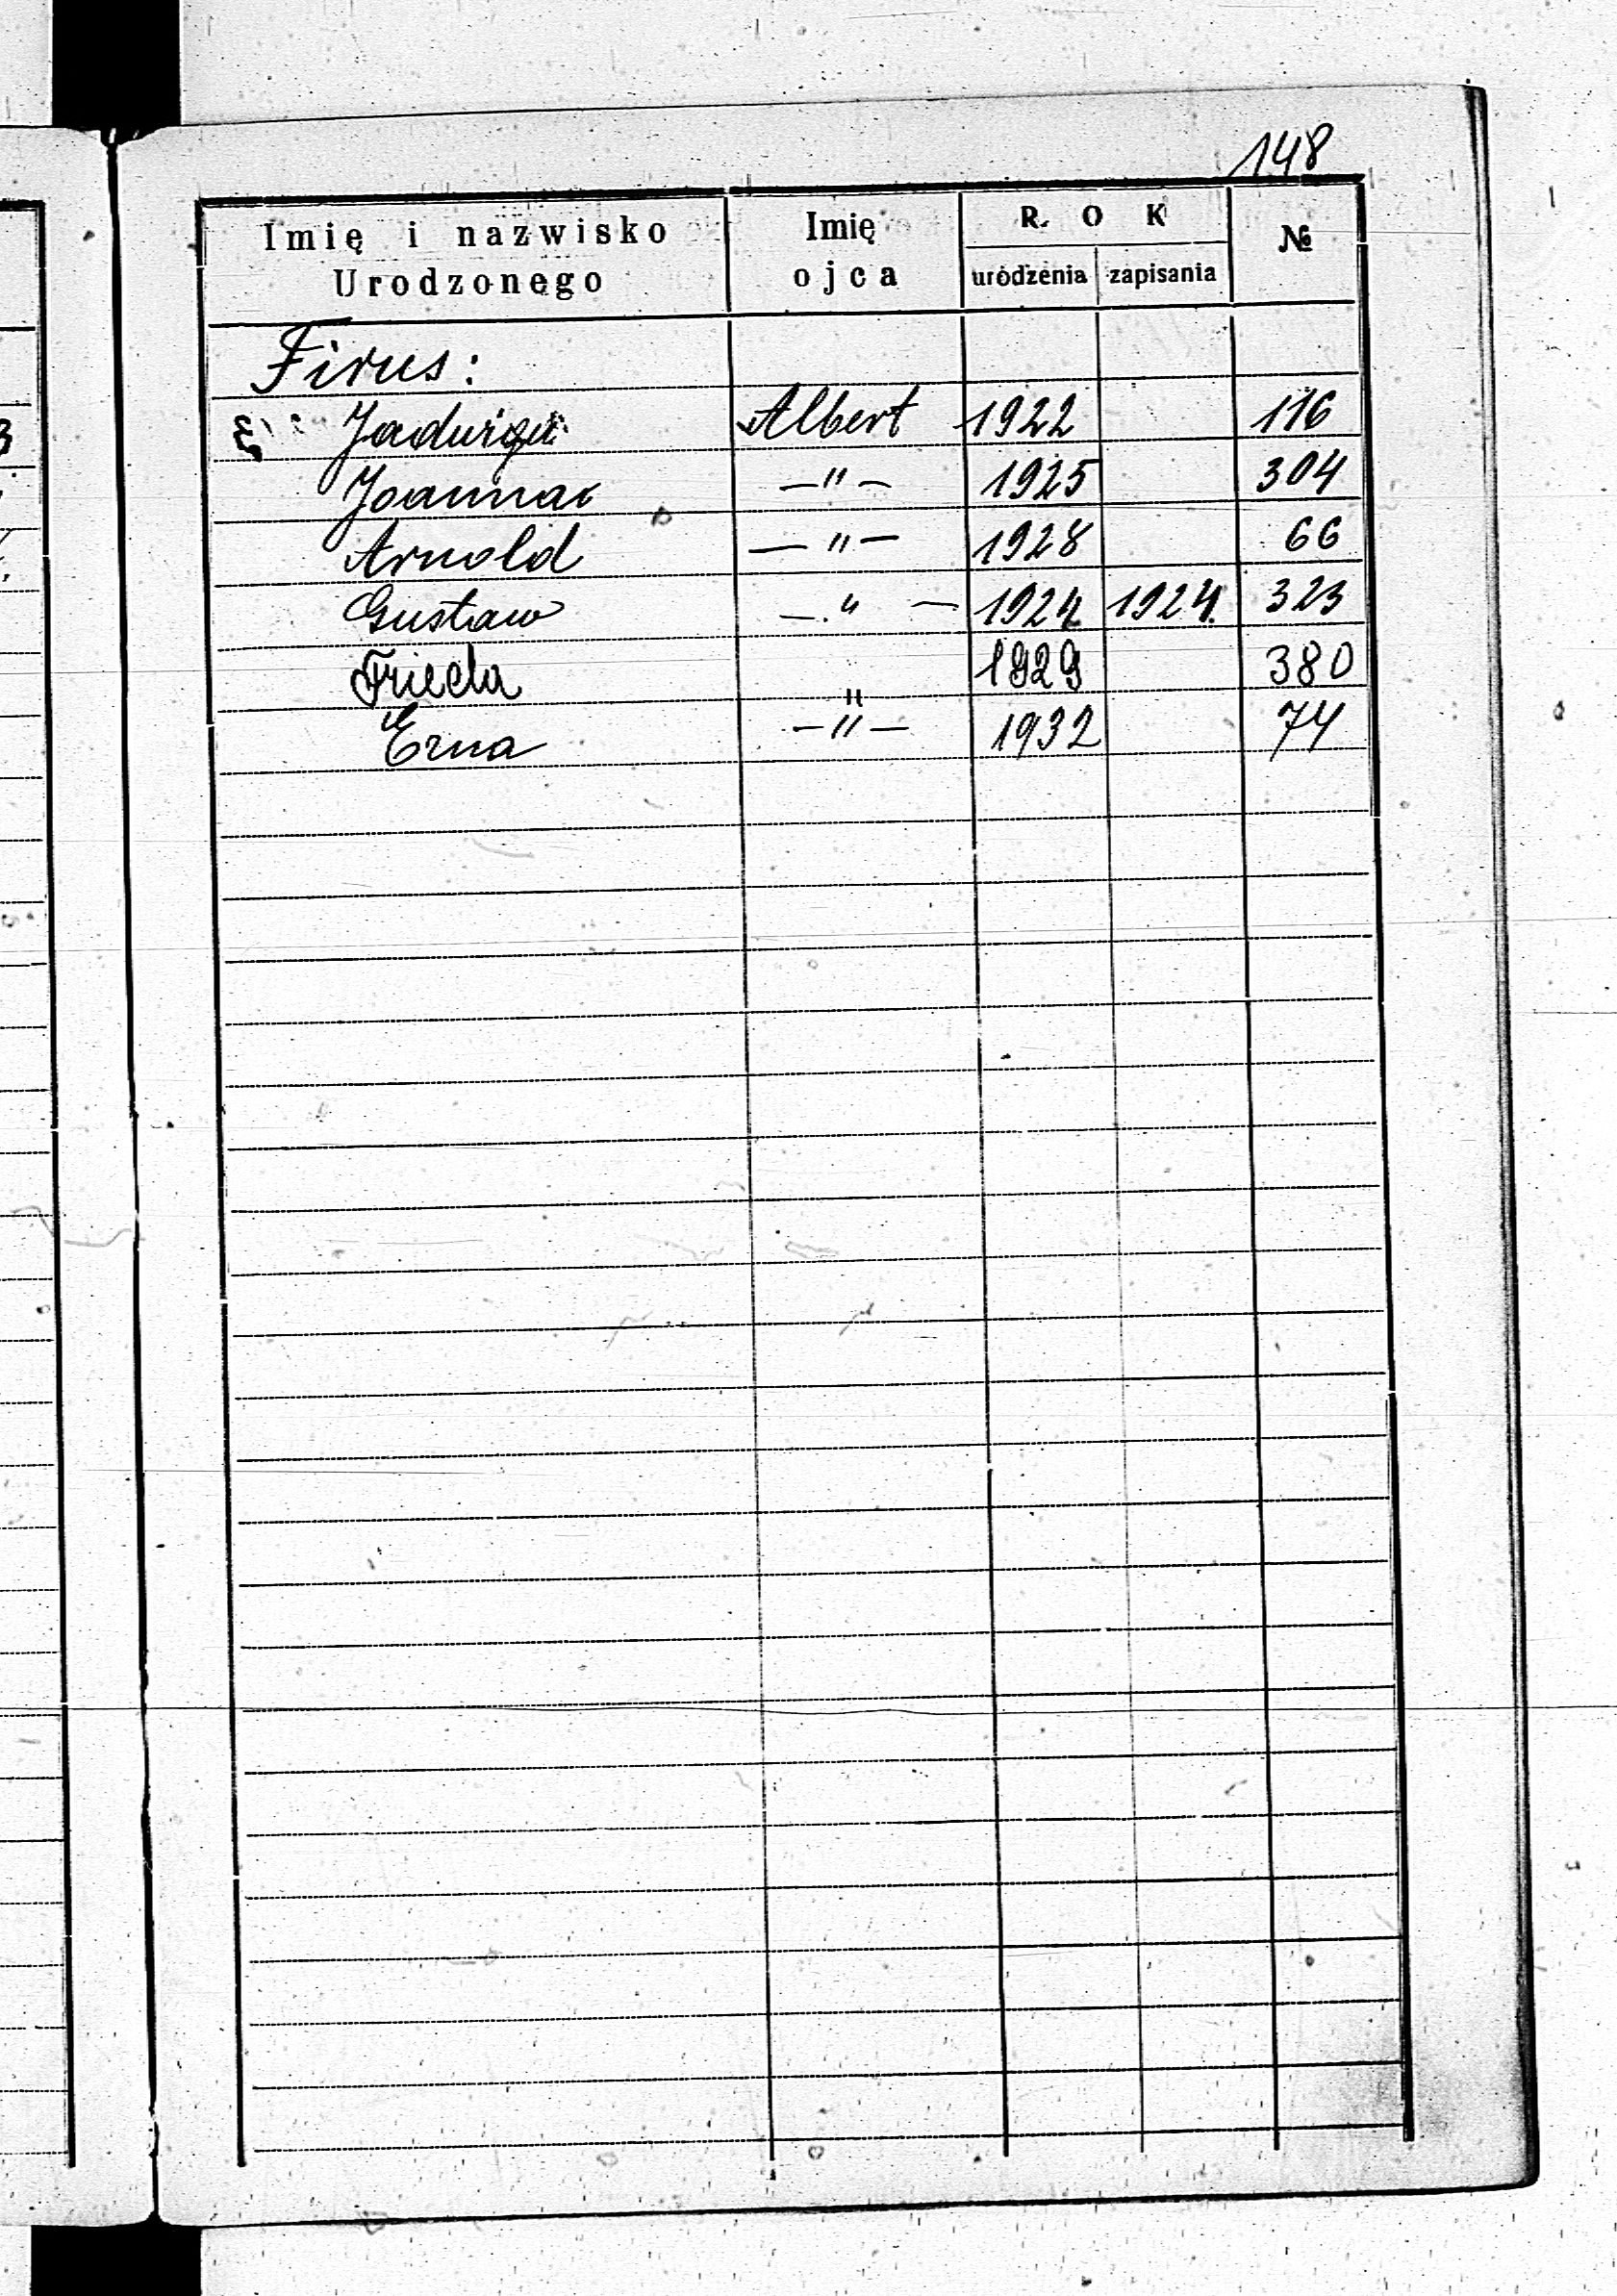 148
Imię i nazwisko Urodzonego Imię ojca R. O K urodzenia zapisania №
Firus:
Jadwiga Albert 1922 116
Joanna —"— 1925 304
Arnold —"— 1928 66
Gustaw —"— 1924 1924 323
Frieda " 1929 380
Erna —"— 1932 74